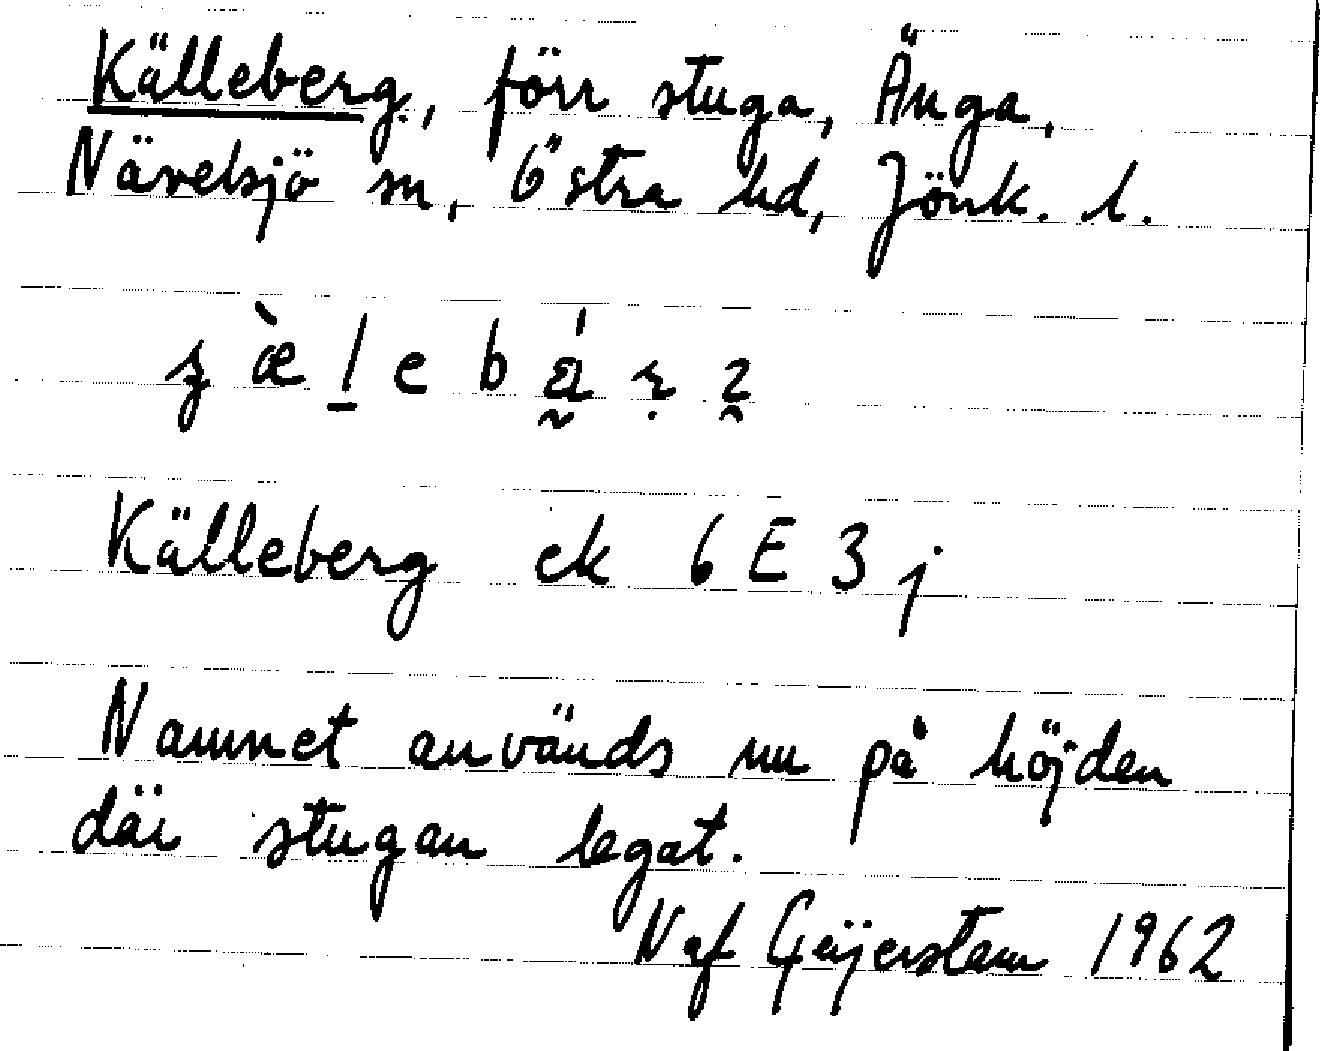 Källeberg, förr stuga, Änga,
Nävelsjö sn, Östra hd, Jönk. l.
Källeberg ek 6E3j
Namnet används nu på höjden
där stugan legat.
N af Geijerstam 1962